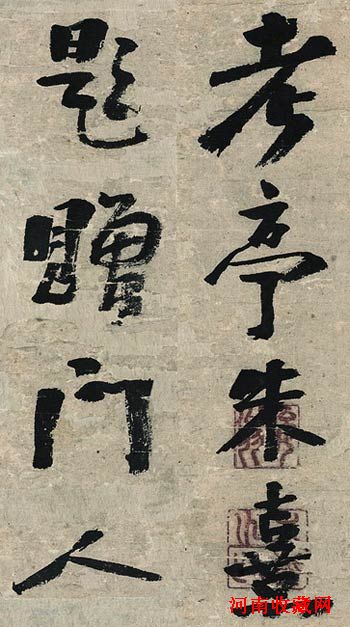 考亭朱熹
題贈門人
河南收藏网